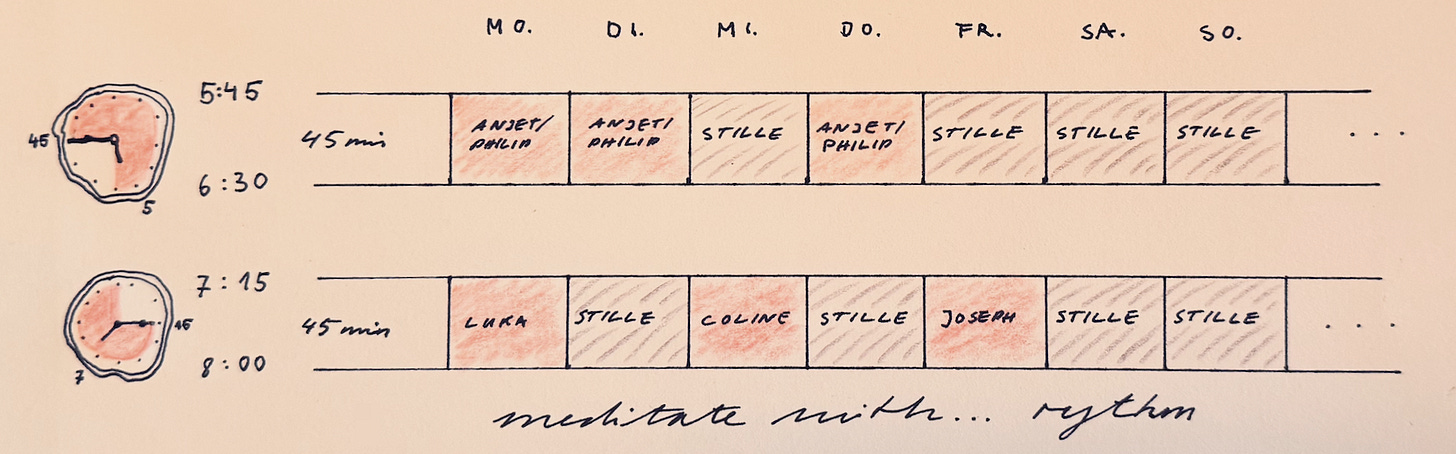 MO. DI. MI. DO. FR. SA. SO.
5:45
45 min
ANJET/ PHILIP
ANJET/ PHILIP
STILLE
ANJET/ PHILIP
STILLE
STILLE
STILLE
...
45
6:30
5
7:15
45 min
LUKA
STILLE
COLINE
STILLE
JOSEPH
STILLE
STILLE
....
15
8:00
7
meditate with... rythm